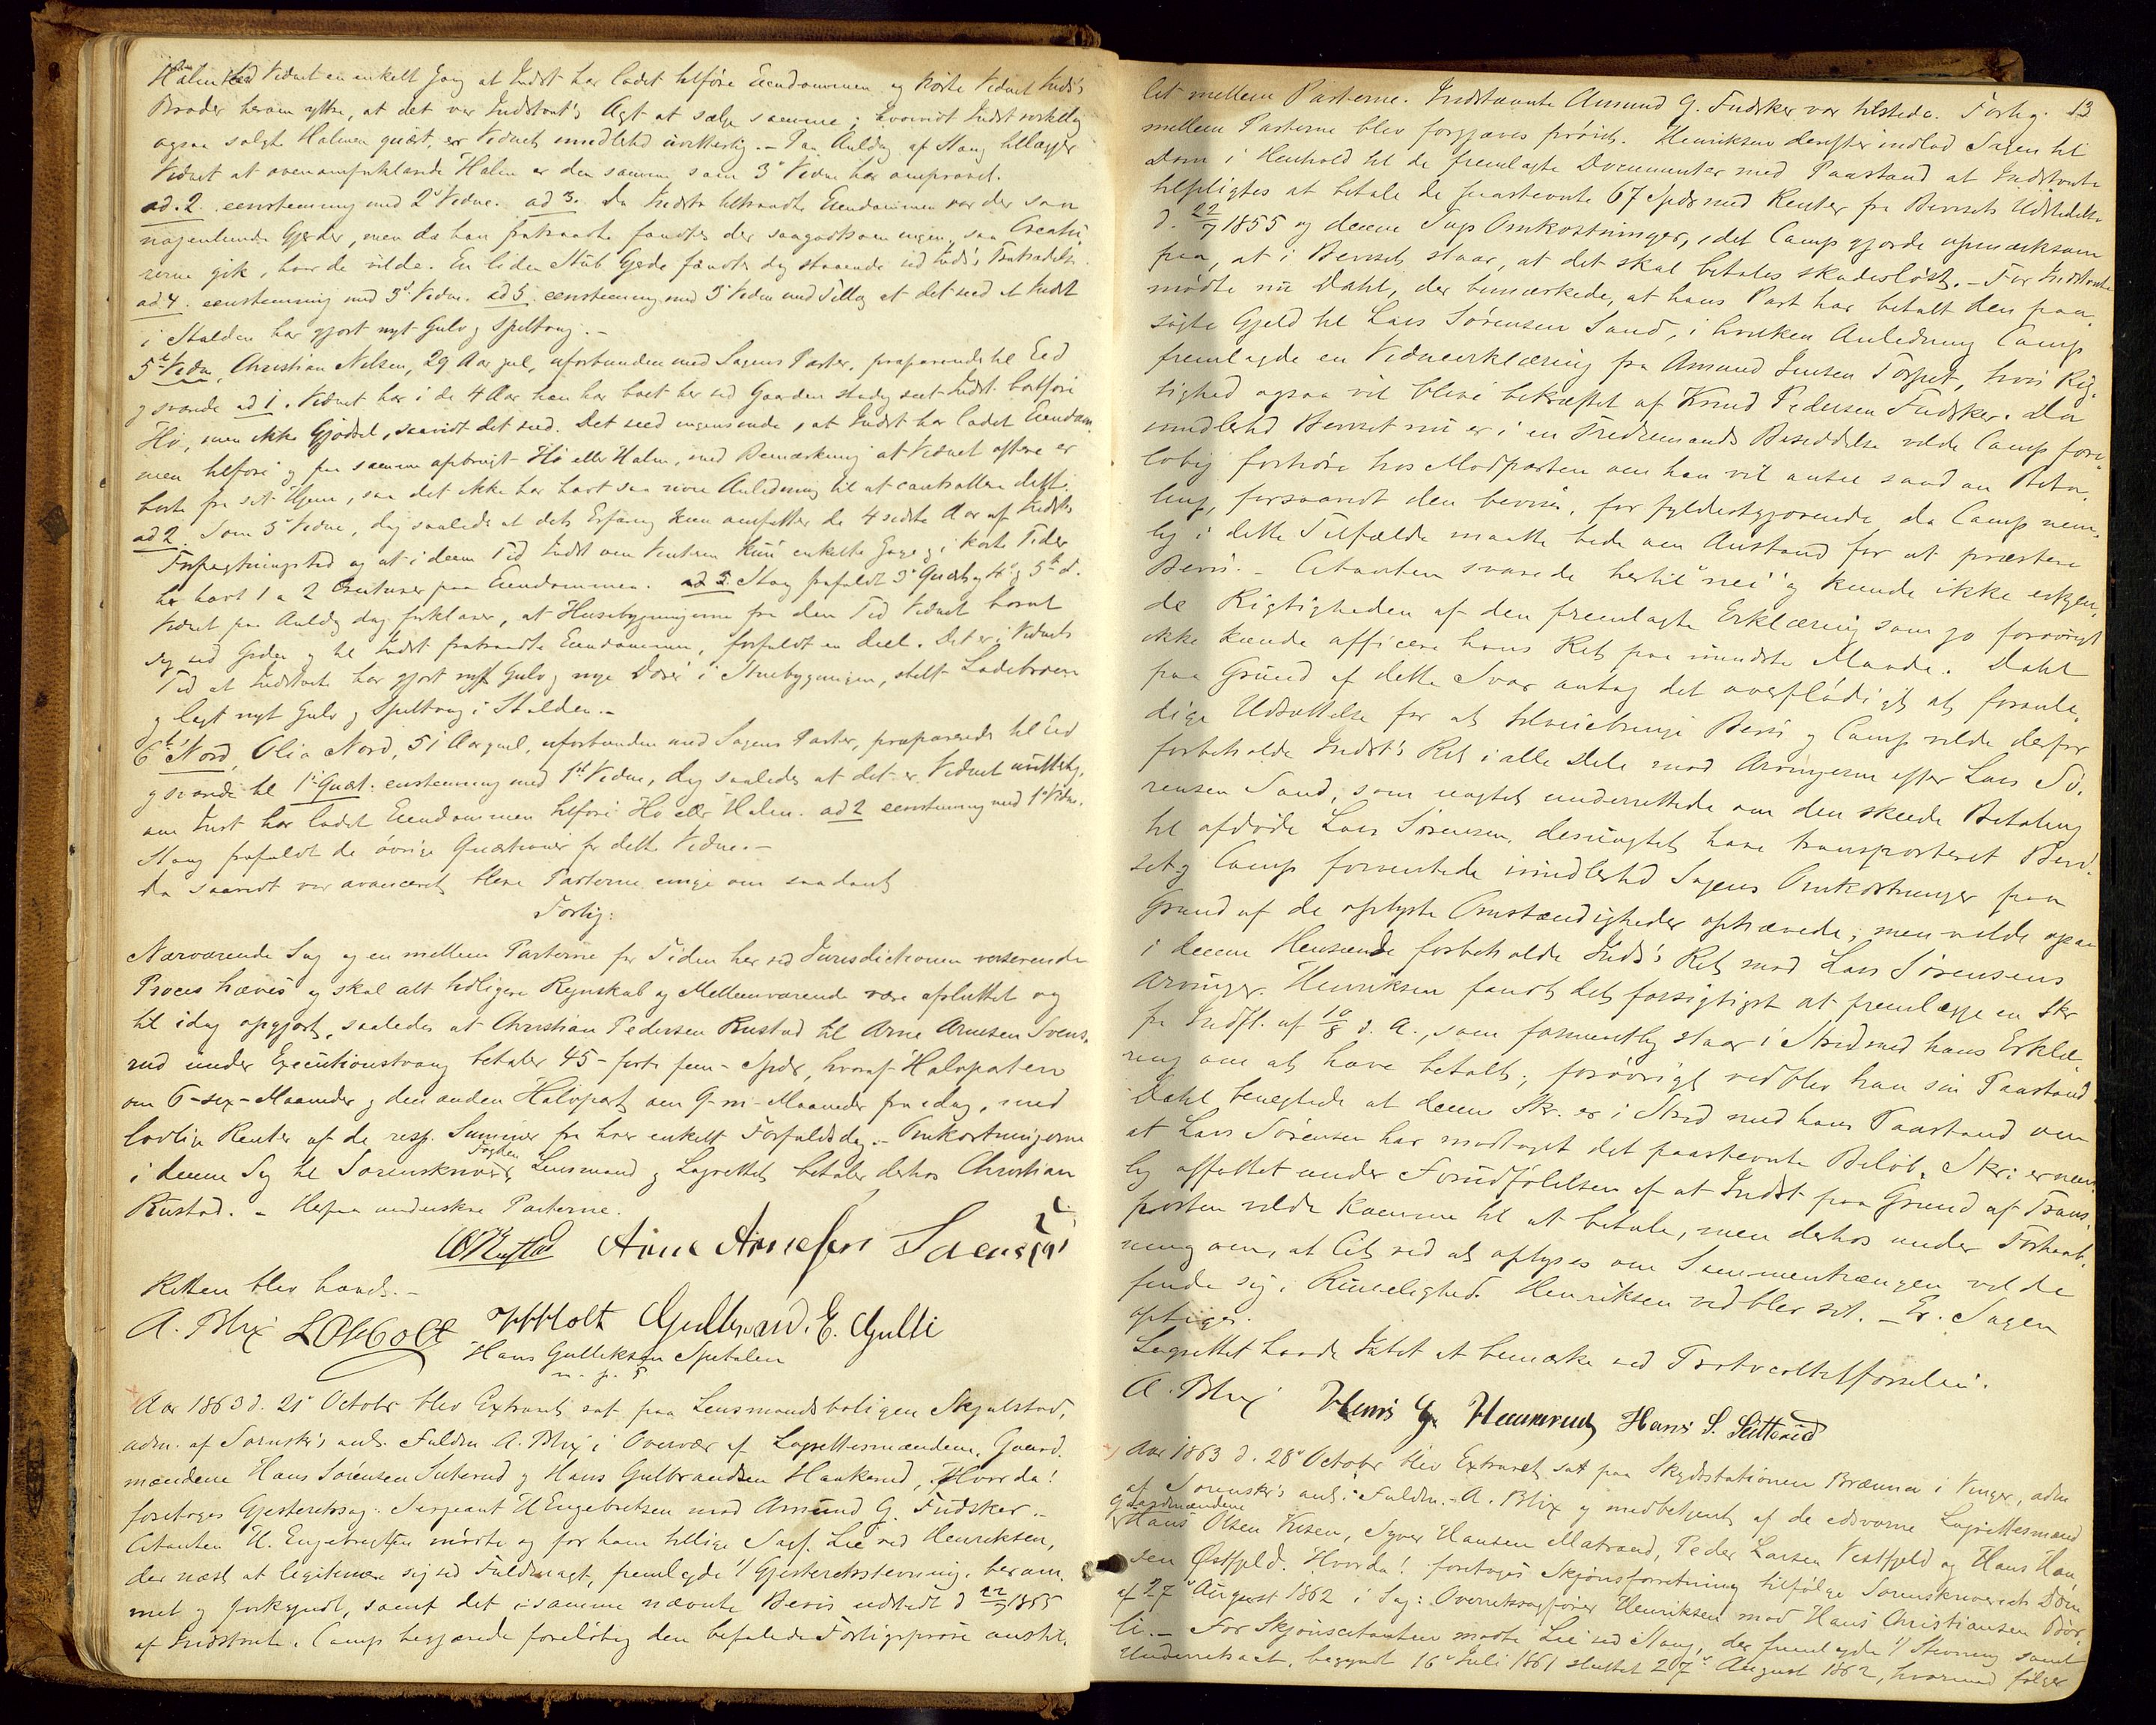 Halm. Saa Vidnet en enkelt Gang at Indst har ladet tilføre Eiendommen og hørte Vidnet Inds's
Broder herom yttre, at det var Indstevnt's Agt at sælge samme; hvorvidt Indst
ogsaa solgte Halmen quæst. er Vidnet imidlertid uvitterlig. – Paa Anledng af Stang tillægger
Vidnet at ovenomforklarede Halm er den samme som 3d Vidne har omprovet.
ad. 2. eenstemmig med 2d Vidne. ad 3. Da Indstn tiltraadte Eiendommen var der saa
nogenlunde Gjerder, men da han fratraadte fandtes der saagodtsom ingen, saa Creatu-
rerne gik, hvor de vilde. En liden Stub Gjerde fandtes dog staaende ved Inds's Fratrædelse.
ad 4. eenstemmig med 3d Vidne. ad 5. eenstemmig med 3 Vidne med Tillæg at det veed at Indst
i Stalden har gjort nyt Gulv og Spiltoug. –
5te Vidne, Christian Nilsen, 29 Aar gml, uforbunden med Sagens Parter, præparerede til Eed
og svarede ad 1. Vidnet har i de 4 Aar han har boet her ved Gaarden stadig seet Indst bortføre
Hø, men ikke Gjødsel, saavidt det veed. Det veed ingensinde, at Indst har ladet Eiendom-
men tilføre og fra samme afbragt Hø eller Halm, med Bemærkning at Vidnet oftere er
borte fra sit Hjem, saa det ikke har havt saa stor Anledning til at controllere dette.
ad 2. Som 3d Vidne, dog saaledes at dets Erfaring kun omfatter de 4 sidste Aar af Indsts
Forpagtningstid og at i denne Tid Indst om Vinteren kun enkelte Gange og i korte Tider
har havt 1 a 2 Creaturer paa Eiendommen. ad 3. Stang frafaldt 3d Quæst. og 4d og 5te do.
Vidnet paa Anledng dog forklarer, at Husebygningerne fra den Tid Vidnet kom
dig ved Gden og til Indst fratraadte Eiendommen, forfaldt en Deel. Det er i Vidnets
Tid at Indstevnte har gjort nyt Gulv og nye Døre i Stuebygningen, stelt Ladebroen
og lagt nyt Gulv og Spiltoug i Stalden. –
6te Nord, Olia Nord, 51 Aar gml, uforbunden med Sagens Parter, præparerede til Eed
og svarede til 1d Quæst: eenstemmig med 1ste Vidne, dog saaledes at det er Vidnet uvitterlig,
om Indst har ladet Eiendommen tilføre Hø eller Halm. ad 2 eenstemmig med 1d Vidne.
Stang frafaldt de øvrige Quæstioner for dette Vidne. –
Da saavidt var avanceret bleve Parterne enige om saadant
Forlig:
Nærværende Sag og en mellem Parterne for Tiden her ved Jurisdictionen verserende
Proces hæves og skal alt tidligere Regnskab og Mellemværende være afsluttet og
til idag opgjort, saaledes at Christian Pedersen Rustad til Arne Arnesen Svens-
rud under Executionstvang betaler 45 – forti fem – Spdr, hvoraf Halvparten
om 6 – sex – Maaneder og den anden Halvpart om 9 – ni – Maaneder fra idag, med
lovlige Renter af de resp. Summer fra hver enkelt Forfaldsdag. – Omkostningerne
i denne Sag til Sorenskriver, Fogden, Lensmand og Lagrettet betaler derhos Christian
Rustad. – Herpaa underskrev Parterne.
CPRustad Arne Arnesen Svensrud
Retten blev hævet. –
A. Blix LOHolt HHHolt Gulbrand. E. Gulli
Hans Gulliksen Spetalen
m. p. P
Aar 1863 d. 21d Octobr blev Extraret sat paa Lensmandsboligen Skjulstad,
adm. af Sornskr's aut. Fuldm. A. Blix i Overvær af Lagrettesmændene, Gaard-
mændene Hans Sørensen Suterud og Hans Gulbrandsen Haukerud, Hvor da!
foretoges Gjesteretssag: Sergeant H Engebretsen mod Amund G. Fudsker. –
Citanten H. Engebretsen mødte og for ham tillige Sagf. Lie ved Henriksen,
der næst at legitimere sig ved Fuldmagt, fremlagde 1/ Gjesteretsstevning, beram-
met og forkyndt, samt det i samme nævnte Bevis udstedt d 22/7 1855
af Indstevnte. Comp begjærede foreløbig den befalede Forligsprøve anstil-
13
let mellem Parterne. Indstævnte Amund G. Fudsker var tilstede. Forlig
mellem Parterne blev forgjæves prøvet. Henriksen derefter indlod Sagen til
Dom i Henhold til de fremlagte Documenter med Paastand at Indstevnte
tilpligtes at betale de paastevnte 67 Spdr med Renter fra Bevisets Udstedelse
d. 22/7 1855 og denne Sags Omkostninger, idet Comp gjorde opmærksom
paa, at i Beviset staar, at det skal betales skadesløst. – For Indstevnte
mødte nu Dahl, der bemærkede, at hans Part har betalt den paa-
søgte Gjeld til Lars Sørensen Sand, i hvilken Anledning Comp
fremlagde en Vidneerklæring fra Amund Jensen Torpet, hvis Rig-
tighed ogsaa vil blive bekræftet af Knud Pedersen Fudsker. Da
imidlertid Beviset nu er i en Tredjemands Besiddelse vilde Comp fore-
løbig forhøre hos Modparten om han vil ansee saadan Beta-
ling, forsaavidt den bevises, for fyldestgjørende, da Comp nem-
lig i dette Tilfælde maatte bede om Anstand for at præstere
Bevis. – Citanten svarede hertil "nei" og kunde ikke erkjen-
de Rigtigheden af den fremlagte Erklæring som jo forøvrigt
ikke kunde afficere hans Ret paa mindste Maade. Dahl
paa Grund af dette Svar antog det overflødigt at foranle-
dige Udsættelse for at tilveiebringe Bevis og Comp vilde derfor
forbeholde Indst's Ret i alle Dele mod Arvingerne efter Lars Sø-
rensen Sand, som uagtet underrettede om den skeede Betaling
til afdøde Lars Sørensen, desuagtet have transporteret Bevi-
set og Comp formente imidlertid Sagens Omkostninger paa
Grund af de oplyste Omstændigheder ophævede; men vilde ogsaa
i denne Henseende forbeholde Inds's Ret mod Lars Sørensens
Arvinger. Henriksen fandt det forsigtigst at fremlægge en Skr
fra Indst. af 10/8 d. A., som formentlig staar i Strid med hans Erklæ-
ring om at have betalt; forøvrigt vedblev han sin Paastand.
Dahl benegtede at denne Skr. er i Strid med hans Paastand om
at Lars Sørensen har modtaget det paastevnte Beløb. Skr: er nem-
lig affattet under Forudfølelsen af at Indst paa Grund af Trans-
porten vilde komme til at betale, men derhos under Forhaab-
ning om, at Cit ved at oplyses om Sammenhængen vilde
finde sig i Rimelighed. Henriksen vedblev sit. – Er. Sagen
optages.
Lagrettet havde Intet at bemærke ved Protocoltilførselen.
A. Blix Hans G. Haukerud Hans S. Sutterud
Aar 1863 d. 28d Octobr blev Extraret sat paa Skydsstationen Brænna i Vinger, adm
af Sorenskr's aut: Fuldm. – A. Blix og medbetjent af de edsvorne Lagrettesmænd
Gaardmændene
Hans Olsen Kusen, Syver Hansen Matrand, Peder Larsen Vestfjeld og Hans Han-
sen Østfjeld. Hvorda! foretoges Skjønsforretning tilfølge Sorenskriverens Dom
af 27d August 1862 i Sag: Overretssagfører Henriksen mod Hans Christiansen Bør-
li. – For Skjønscitanten mødte Lie ved Stang, der fremlagde 1/ Stevning samt
Underretsact, begyndt 16d Juli 1861 sluttet 27d August 1862, hvormed følger